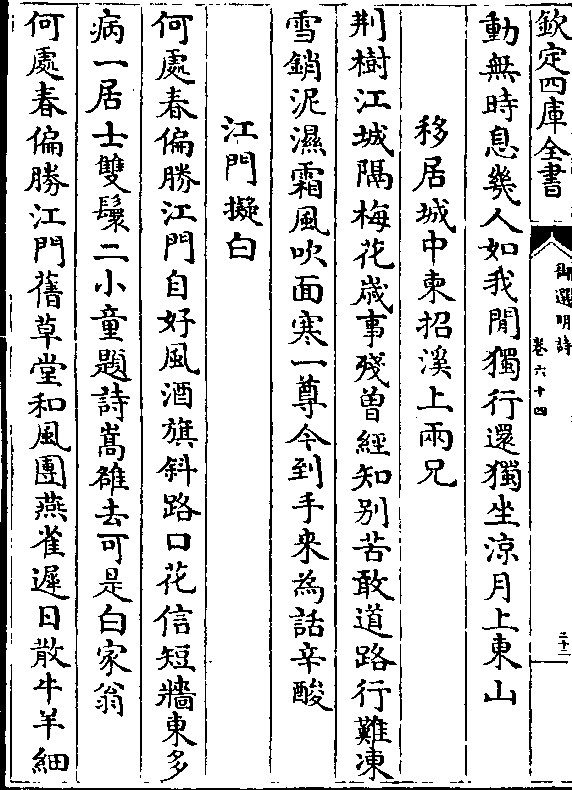 欽定四庫全書
御選明詩
卷六十四
二十二
動無時息幾人如我閒獨行還獨坐涼月上東山
移居城中柬招溪上兩兄
荆樹江城隔梅花歲事殘曾經知别苦敢道路行難凍
雪銷泥濕霜風吹面寒一尊今到手來為話辛酸
江門擬白
何處春偏勝江門自好風酒旗斜路口花信短牆東多
病一居士雙鬟二小童題詩嵩雒去可是白家翁
何處春偏勝江門舊草堂和風團燕雀遲日散牛羊細